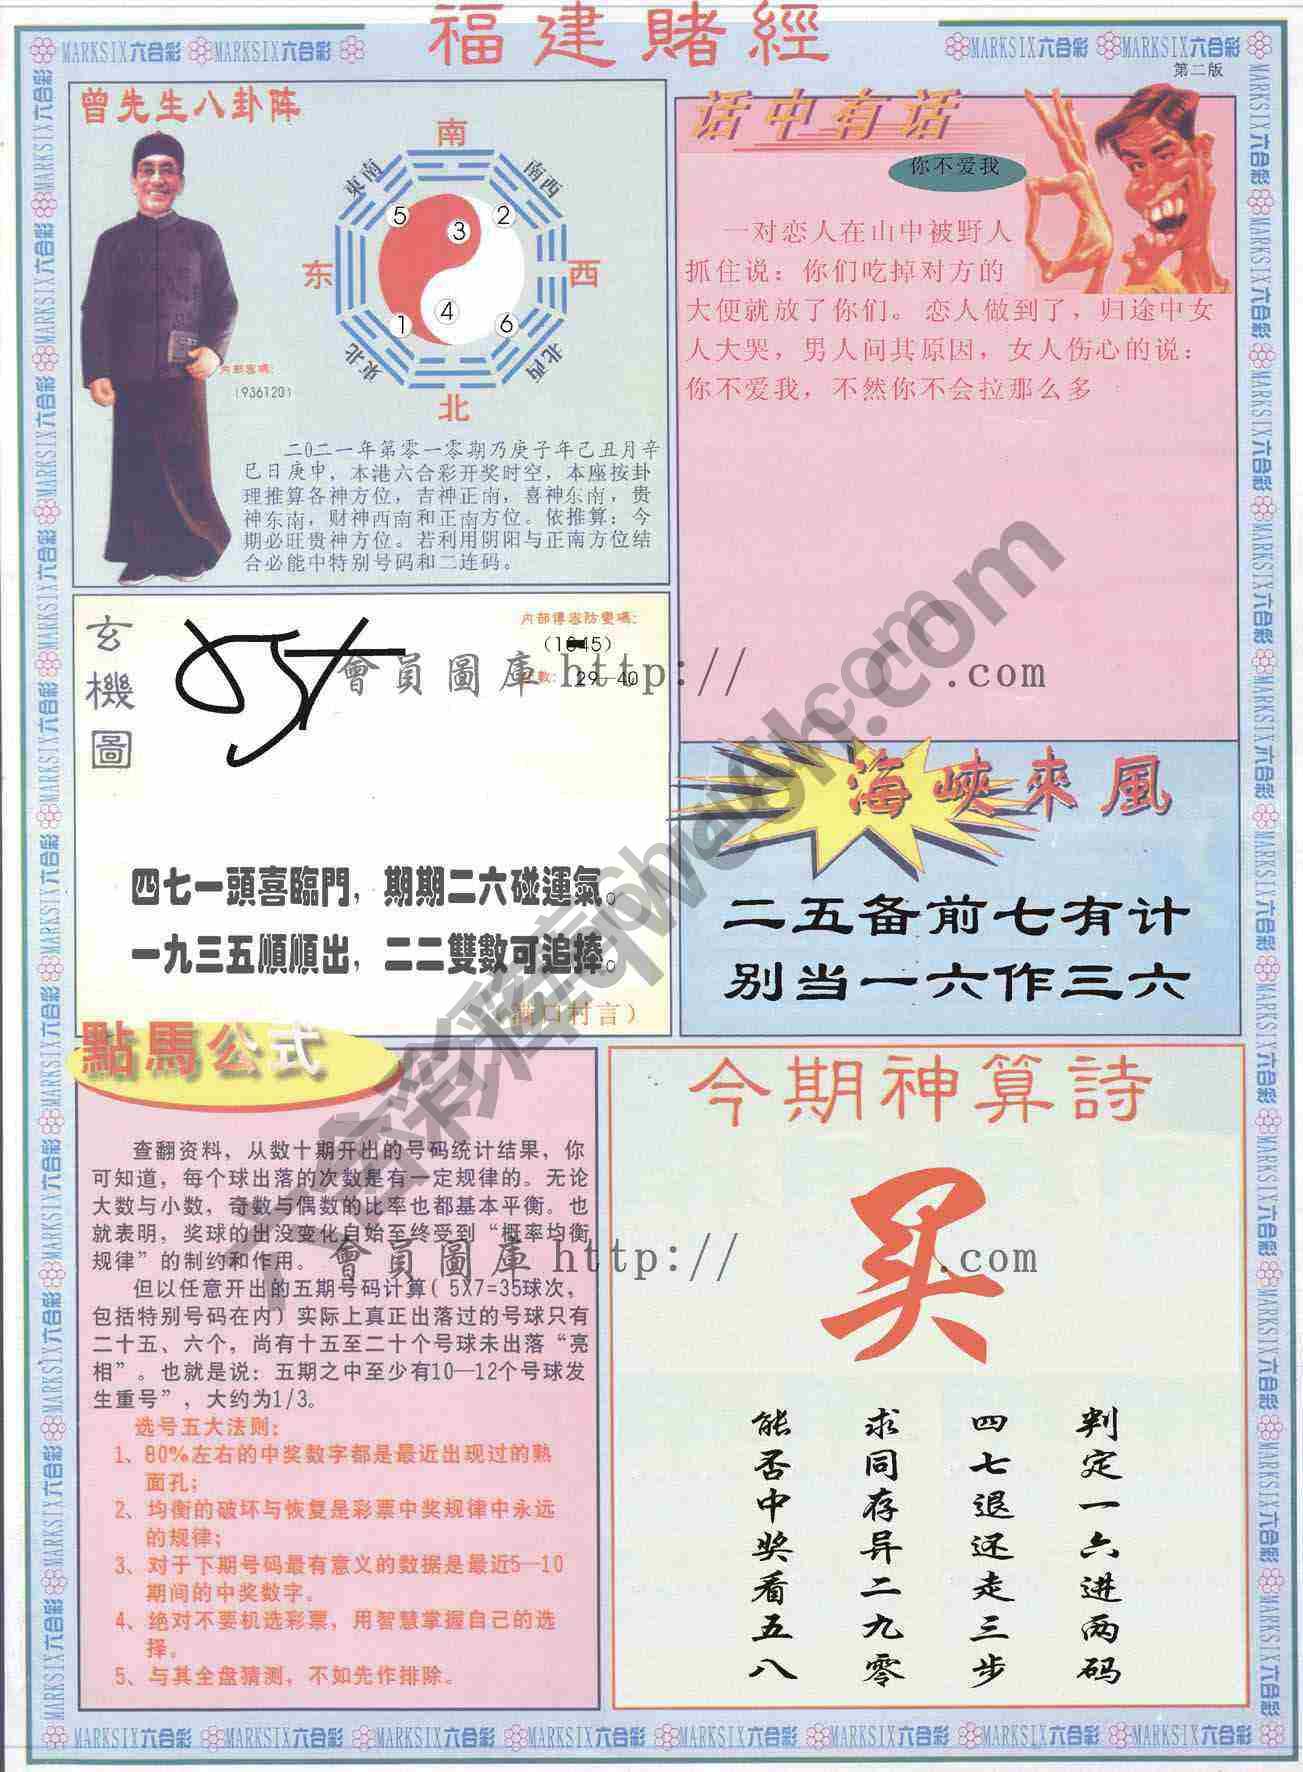 福建賭經
MARKSIX六合彩 MARKSIX六合彩
MARKSIX六合彩 MARKSIX六合彩
第二版
曾先生八卦阵
南
東南
南西
东
西
東北
北西
北
5
3
2
4
1
6
内部密碼:
(936120)
二〇二一年第零一零期乃庚子年己丑月辛
巳日庚申，本港六合彩开奖时空，本座按卦
理推算各神方位，吉神正南，喜神东南，贵
神东南，财神西南和正南方位。依推算：今
期必旺贵神方位。若利用阴阳与正南方位结
合必能中特别号码和二连码。
话中有话
你不爱我
一对恋人在山中被野人
抓住说：你们吃掉对方的
大便就放了你们。恋人做到了，归途中女
人大哭，男人问其原因，女人伤心的说：
你不爱我，不然你不会拉那么多
玄機圖
内部傳密防變碼:
數: 29—40
會員圖庫 http:// .com
四七一頭喜臨門，期期二六碰運氣。
一九三五順順出，二二雙數可追捧。
(满口村言)
海峽來風
二五备前七有计
别当一六作三六
點馬公式
查翻资料，从数十期开出的号码统计结果，你
可知道，每个球出落的次数是有一定规律的。无论
大数与小数，奇数与偶数的比率也都基本平衡。也
就表明，奖球的出没变化自始至终受到“概率均衡
规律”的制约和作用。
但以任意开出的五期号码计算( 5X7=35球次，
包括特别号码在内) 实际上真正出落过的号球只有
二十五、六个，尚有十五至二十个号球未出落“亮
相”。也就是说：五期之中至少有10—12个号球发
生重号”，大约为1/3。
选号五大法则:
1、80%左右的中奖数字都是最近出现过的熟
面孔;
2、均衡的破坏与恢复是彩票中奖规律中永远
的规律;
3、对于下期号码最有意义的数据是最近5—10
期间的中奖数字。
4、绝对不要机选彩票，用智慧掌握自己的选
择。
5、与其全盘猜测，不如先作排除。
會員圖庫 http:// .com
今期神算詩
买
判定一六进两码
四七退还走三步
求同存异二九零
能否中奖看五八
MARKSIX六合彩 MARKSIX六合彩 MARKSIX六合彩 MARKSIX六合彩 MARKSIX六合彩 MARKSIX六合彩 MARKSIX六合彩 MARKSIX六合彩